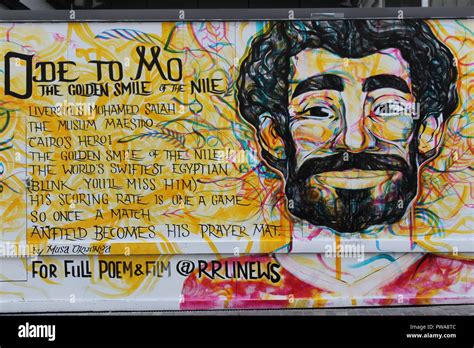 ODE TO MO
THE GOLDEN SMILE OF THE NILE
LIVERPOOL'S MOHAMED SALAH
THE MUSLIM MAESTRO
CAIRO'S HERO!
THE GOLDEN SMILE OF THE NILE
THE WORLD'S SWIFTEST EGYPTIAN
(BLINK YOU'LL MISS HIM)
HIS SCORING RATE IS ONE A GAME
SO ONCE A MATCH
ANFIELD BECOMES HIS PRAYER MAT
by MUSA OKWONGA
FOR FULL POEM & FILM @RRUNEWS
a
alamy
Image ID: PWA8TC
www.alamy.com